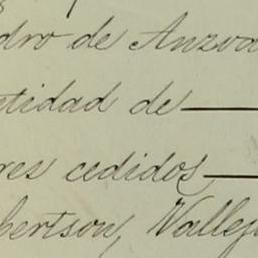 dro de Anzoa
ntidad de
res cedidos
bertson, Vallej